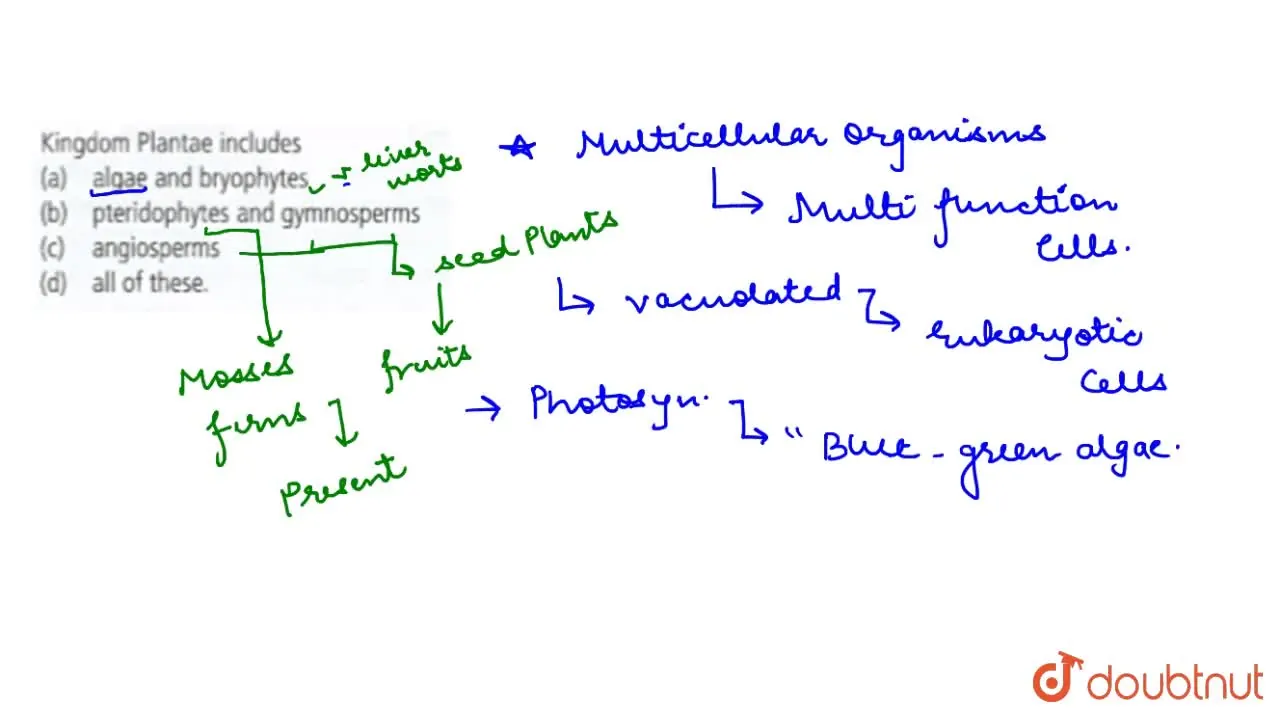 Kingdom Plantae includes
(a) algae and bryophytes
(b) pteridophytes and gymnosperms
(c) angiosperms
(d) all of these.
liver
worts
seed Plants
fruits
Mosses
ferns
Present
Multicellular Organisms
Multi function
Cells.
vacuolated
Eukaryotic
Cells
Photosyn.
" Blue - green algae.
doubtnut